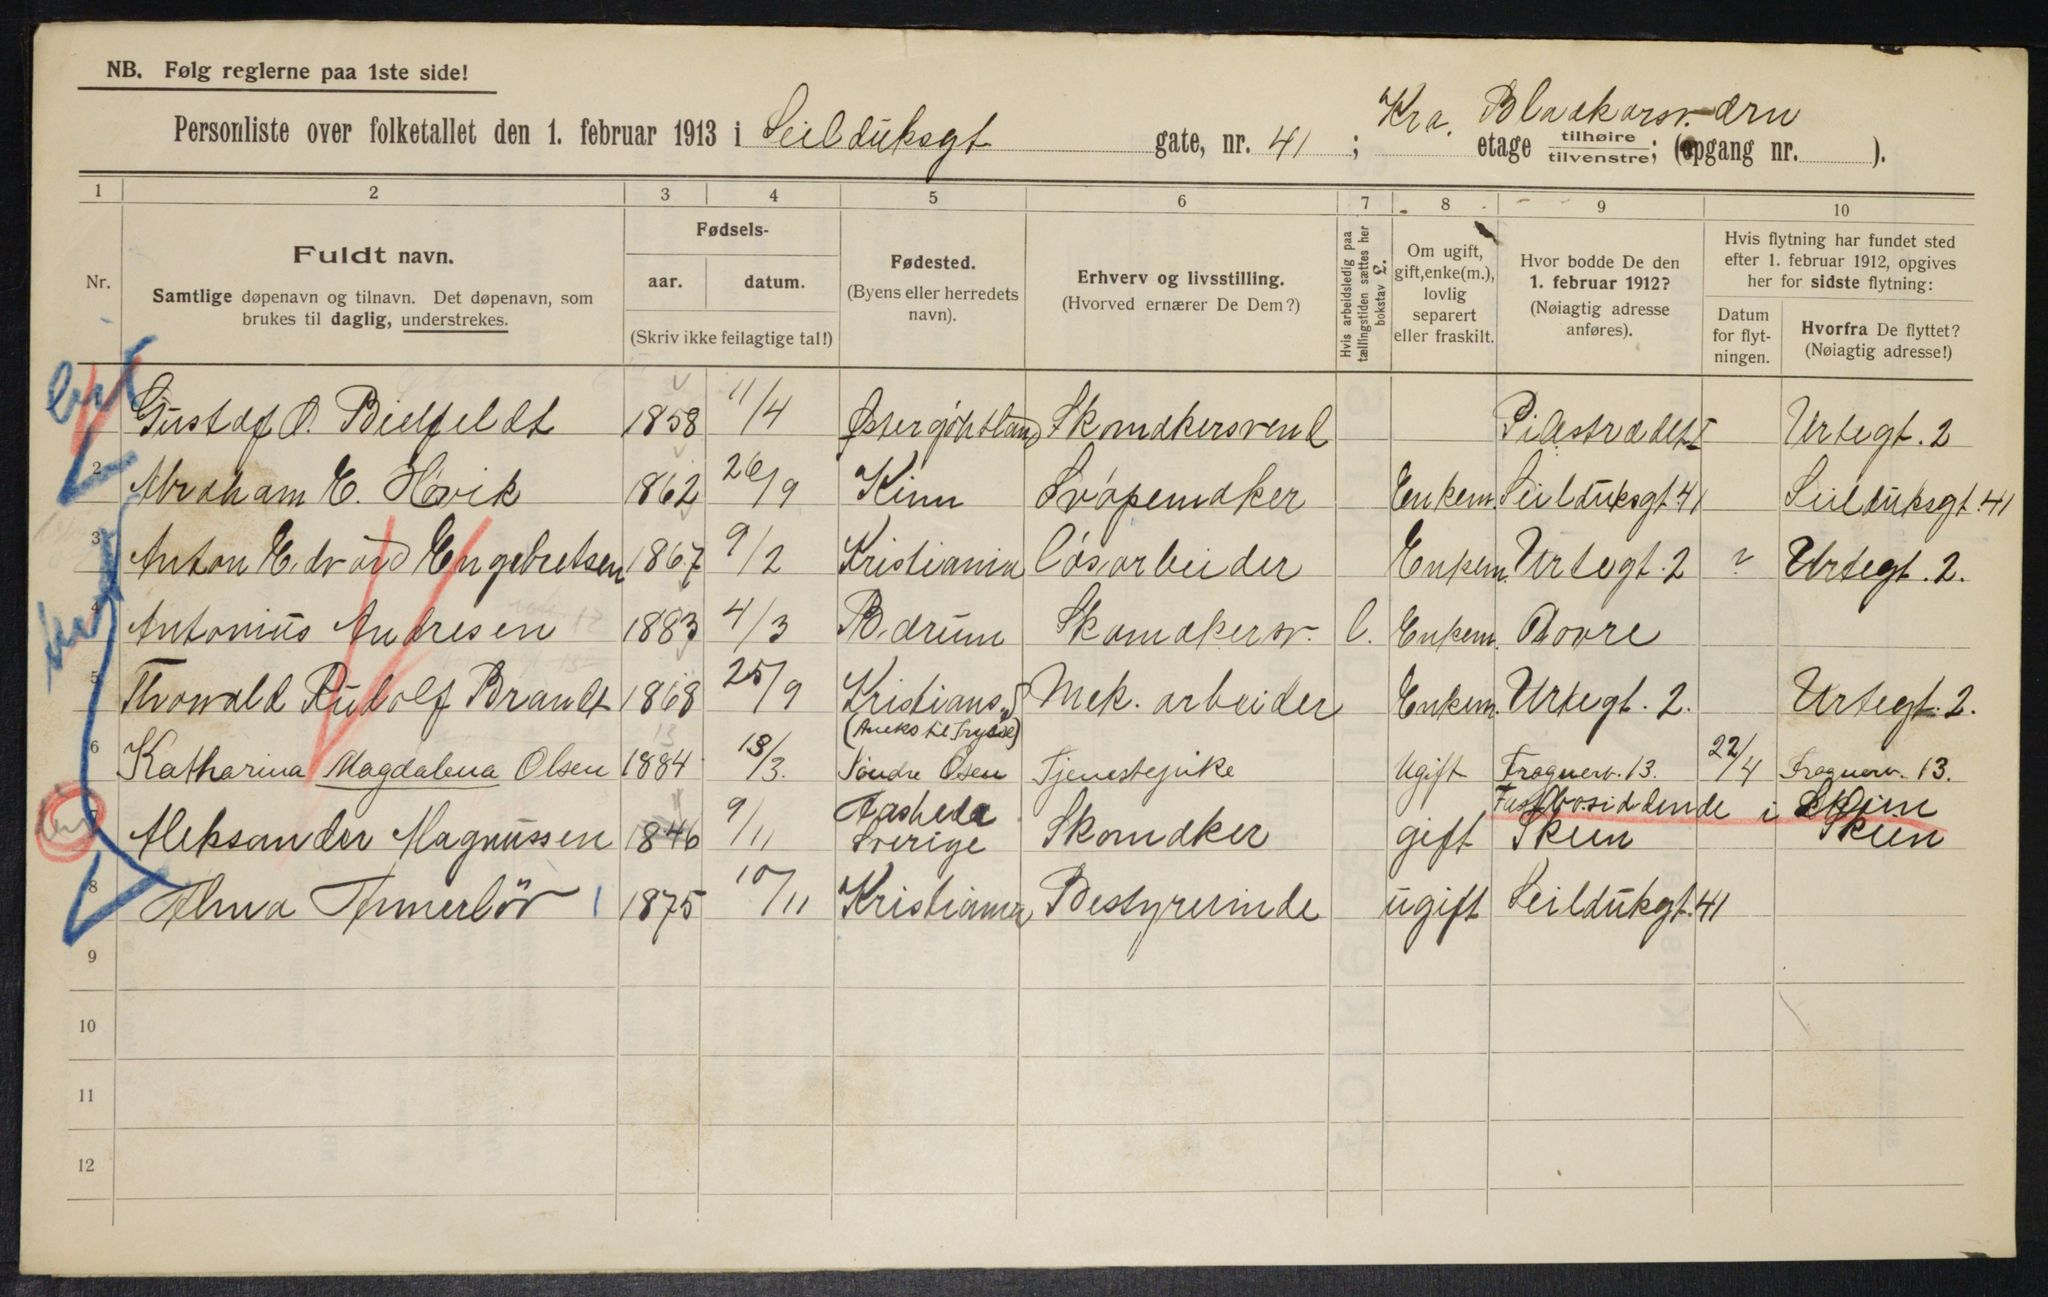 NB. Følg reglerne paa 1ste side!
Kra.
Personliste over folketallet den 1. februar 1913 i Seilduksgt gate, nr. 41 ; etage tilhøire tilvenstre; (opgang nr. ).
1 2 3 4 5 6 7 8 9 10
Nr.
Fuldt navn.
Samtlige døpenavn og tilnavn. Det døpenavn, som
brukes til daglig, understrekes.
Fødsels-
aar. datum.
(Skriv ikke feilagtige tal!)
Fødested.
(Byens eller herredets
navn).
Erhverv og livsstilling.
(Hvorved ernærer De Dem?)
Hvis arbeidsledig paa
tællingstiden sættes her
bokstav L.
Om ugift,
gift, enke(m.),
lovlig
separert
eller fraskilt.
Hvor bodde De den
1. februar 1912?
(Nøiagtig adresse
anføres).
Hvis flytning har fundet sted
efter 1. februar 1912, opgives
her for sidste flytning:
Datum
for flyt-
ningen.
Hvorfra De flyttet?
(Nøiagtig adresse!)
Gustaf O. Bielfeldt 1858 11/4 Østergöhtland Skomakersvend Pilestrædet Urtegt. 2
2 Abraham E. Høvik 1862 26/9 Kinn Svøpemaker Enkem. Seilduksgt. 41 Seilduksgt. 41
3 Anton Edvard Engebretsen 1867 9/2 Kristiania Løsarbeider Enkem. Urtegt. 2 ? Urtegt. 2.
4 Antonius Andresen 1883 4/3 Bærum Skomakersv. l. Enkem. Dovre
5 Thorvald Rudolf Brandt 1868 25/9 Kristians Mek. arbeider Enkem. Urtegt. 2. Urtegt. 2.
6 Katharina Magdalena Olsen 1884 13/3. Søndre Osen Tjenestepike Ugift Frognerv. 13. 22/4 Frognerv. 13.
(Aneks til Trysil)
Fastbosiddende i Skien
7 Aleksander Magnussen 1846 9/11 Sverige Skomaker gift Skien Skien
8 Alma Ammerlöv 1875 10/11 Kristiania Bestyrerinde ugift Seildukgt. 41
9
10
11
12